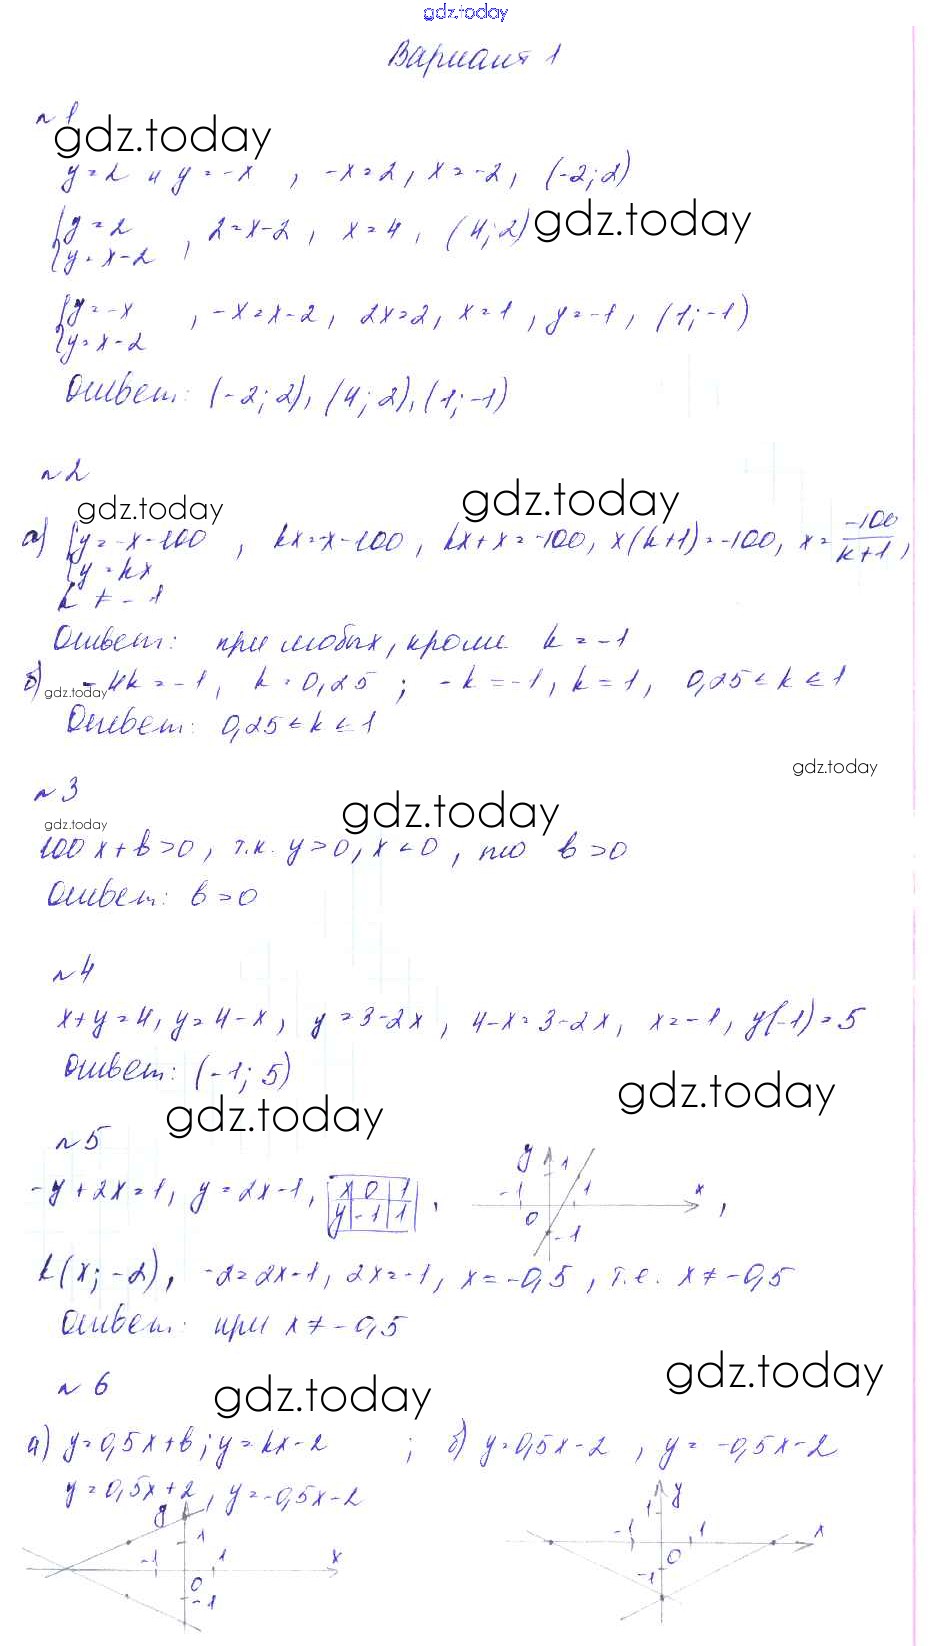 gdz.today
Вариант 1
№1
gdz.today
y=2 и y=-x, -x=2, x=-2, (-2;2)
{y=2
y=x-2, 2=x-2, x=4, (4;2)
gdz.today
{y=-x
y=x-2, -x=x-2, 2x=2, x=1, y=-1, (1;-1)
Ответ: (-2;2), (4;2), (1;-1)
№2
gdz.today gdz.today
а) {y=-x-100
y=kx, kx=-x-100, kx+x=-100, x(k+1)=-100, x=-100/k+1,
k≠-1
Ответ: при любых, кроме k=-1
б) -4k=-1, k=0,25; -k=-1, k=1, 0,25≤k≤1
gdz.today
Ответ: 0,25≤k≤1
gdz.today
№3
gdz.today
gdz.today
100x+b>0, т.к. y>0, x<0, то b>0
Ответ: b>0
№4
x+y=4, y=4-x, y=3-2x, 4-x=3-2x, x=-1, y(-1)=5
Ответ: (-1;5)
gdz.today
gdz.today
№5
-y+2x=1, y=2x-1, x 0 1
y -1 1,
y 1 -1 1 x 0 -1,
k(x;-2), -2=2x-1, 2x=-1, x=-0,5, т.е. x≠-0,5
Ответ: при x≠-0,5
gdz.today
№6
gdz.today
а) y=0,5x+b; y=kx-2; б) y=0,5x-2, y=-0,5x-2
y=0,5x+2, y=-0,5x-2
y 1 -1 1 x 0 -1
y 1 -1 1 x 0 -1